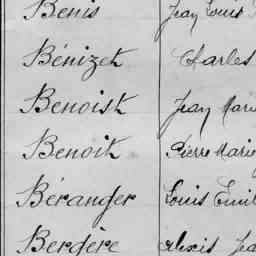 Benis Jean Louis
Bénizet Charles
Benoist Jean Marie
Benoit Pierre Marie
Béranger Louis Emil
Bergère Alexis Jea